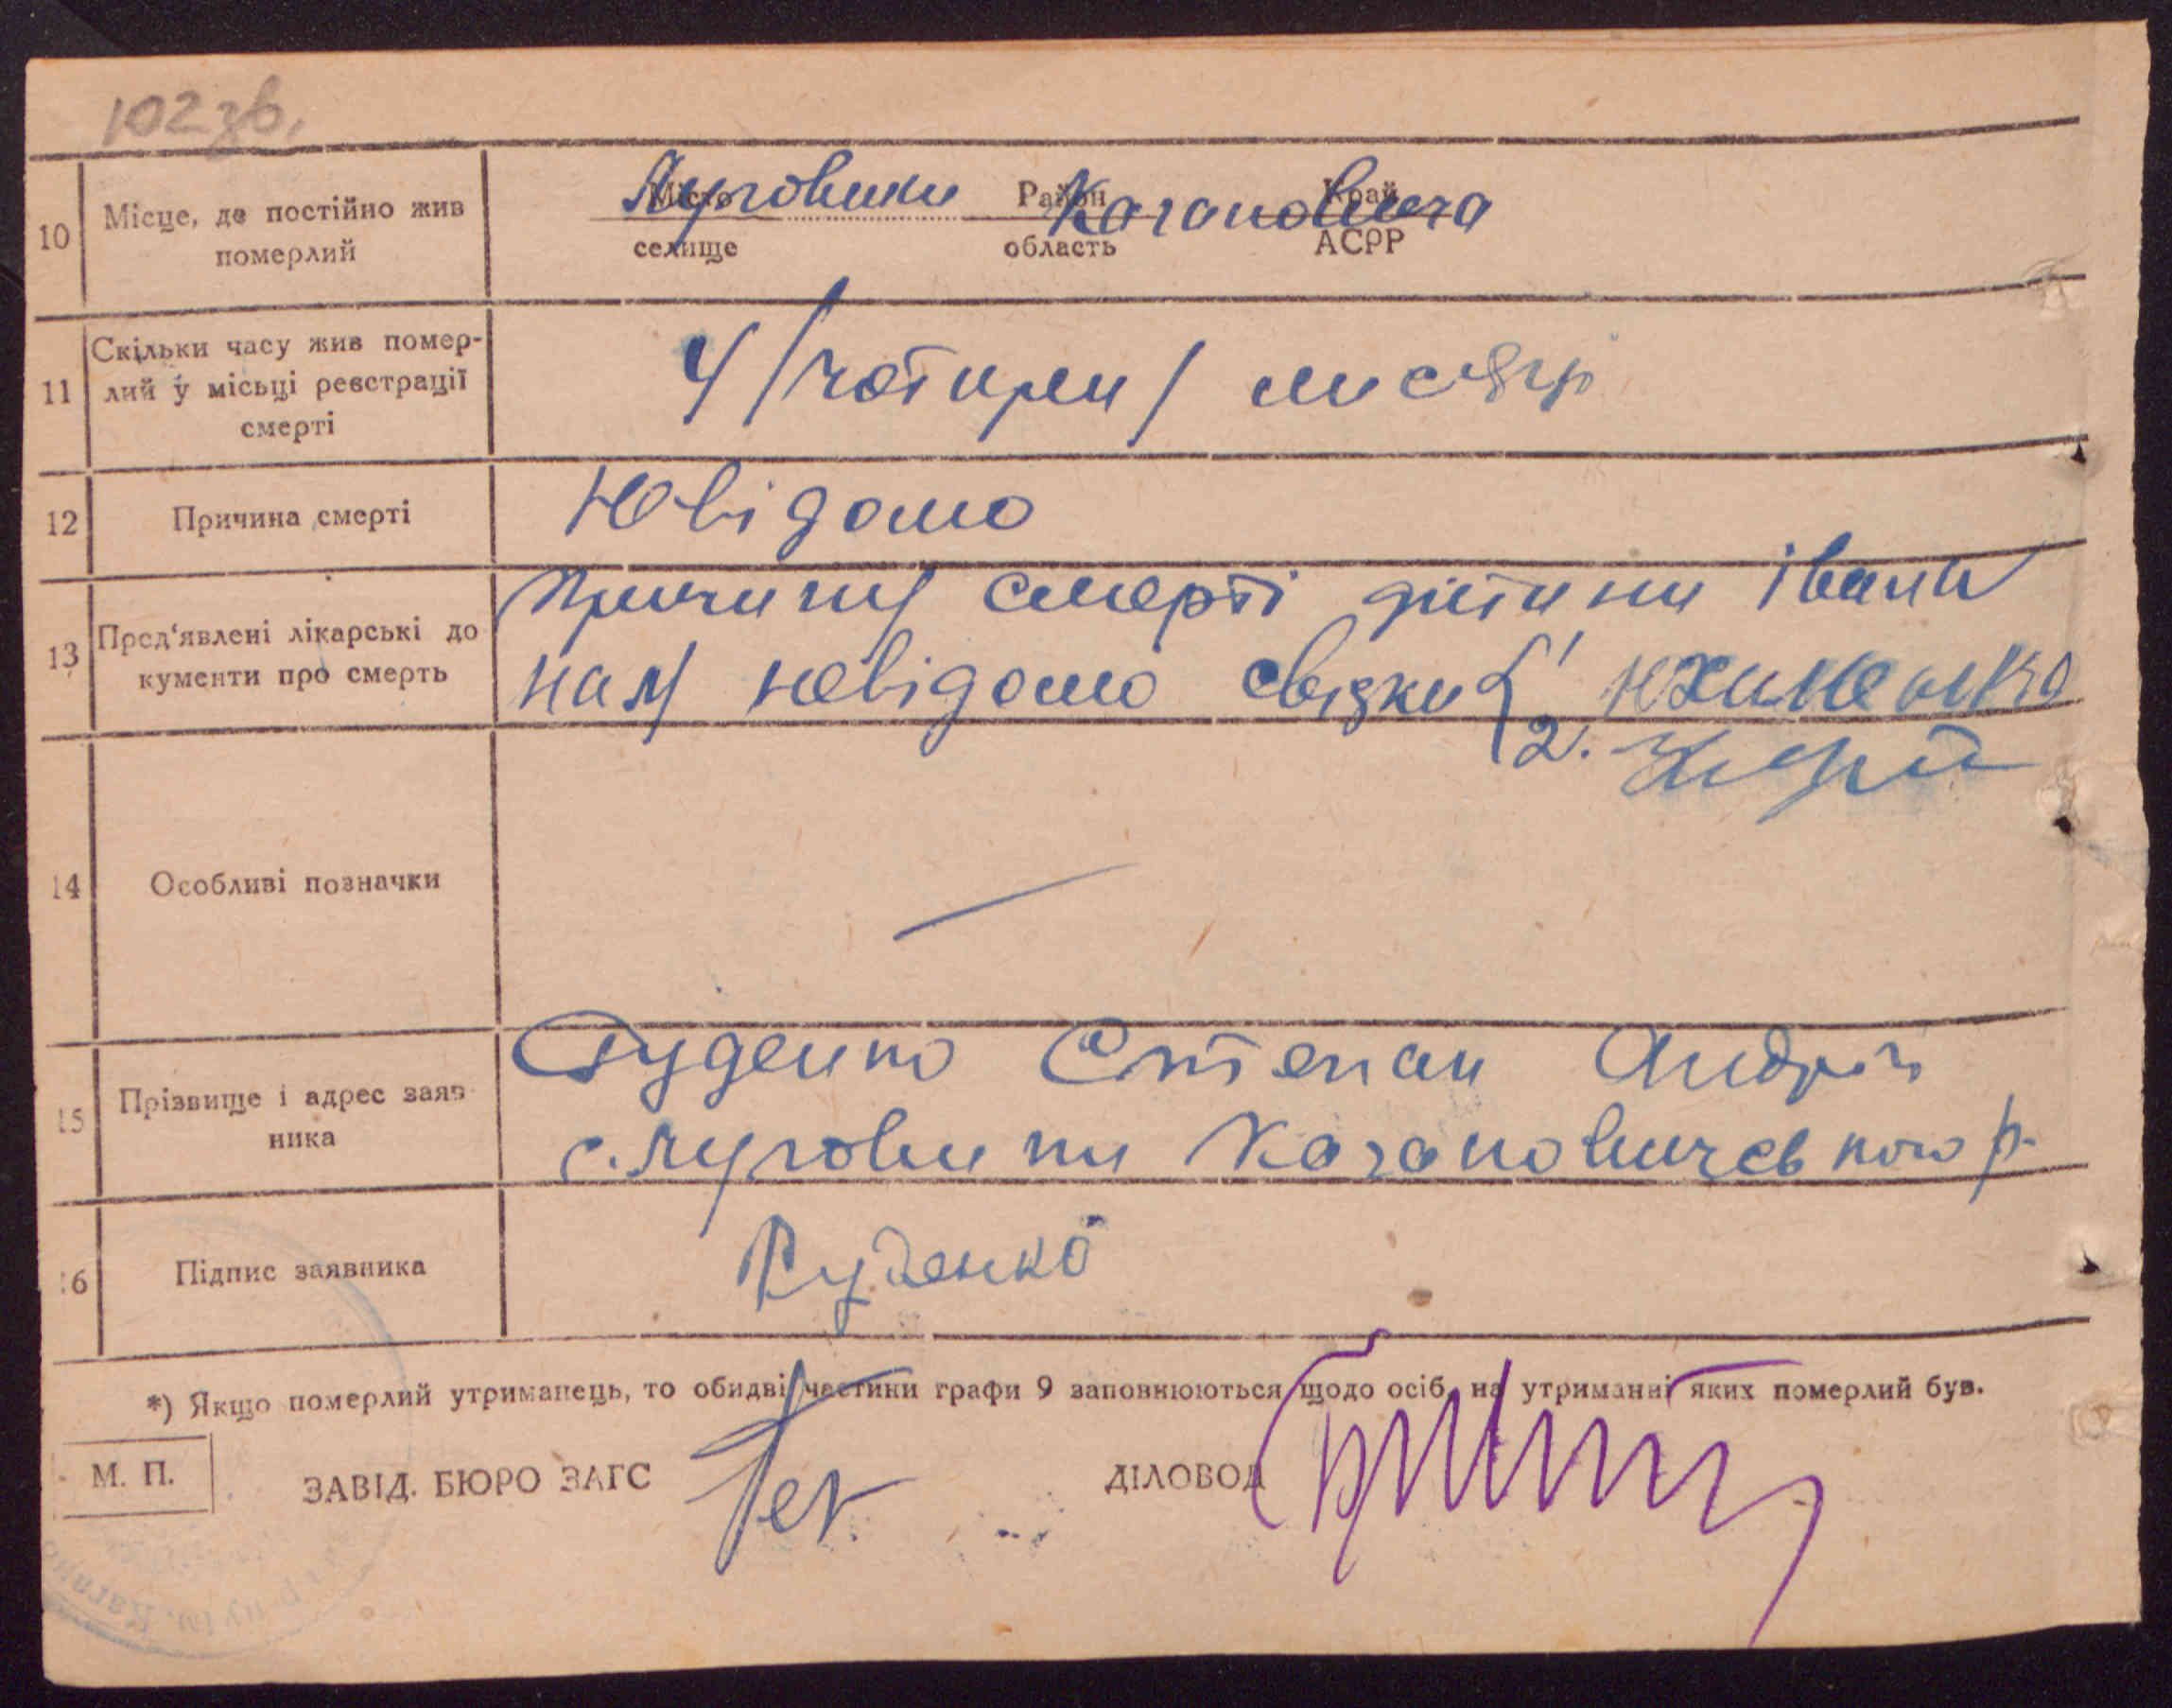 102 зв.
10 Місце, де постійно жив померлий
Місто Район Край
Луговики Кагановича
селище область АСРР
11 Скільки часу жив помер-
лий у місьці реєстрації
смерті
4 /чотири/ мисяці
12 Причина смерті
Невідомо
13 Пред'явлені лікарські до
кументи про смерть
Причину смерті дитини Івана
нам невідомо свідки 1.
2.
14 Особливі позначки
—
15 Прізвище і адрес заяв-
ника
Руденко Степан Андрій
с. Луговики Кагановичевного р.
16 Підпис заявника
Руденко
*) Якщо померлий утриманець, то обидві частини графи 9 заповнюються щодо осіб, на утриманні яких померлий був.
М. П.
ЗАВІД. БЮРО ЗАГС
ДІЛОВОД